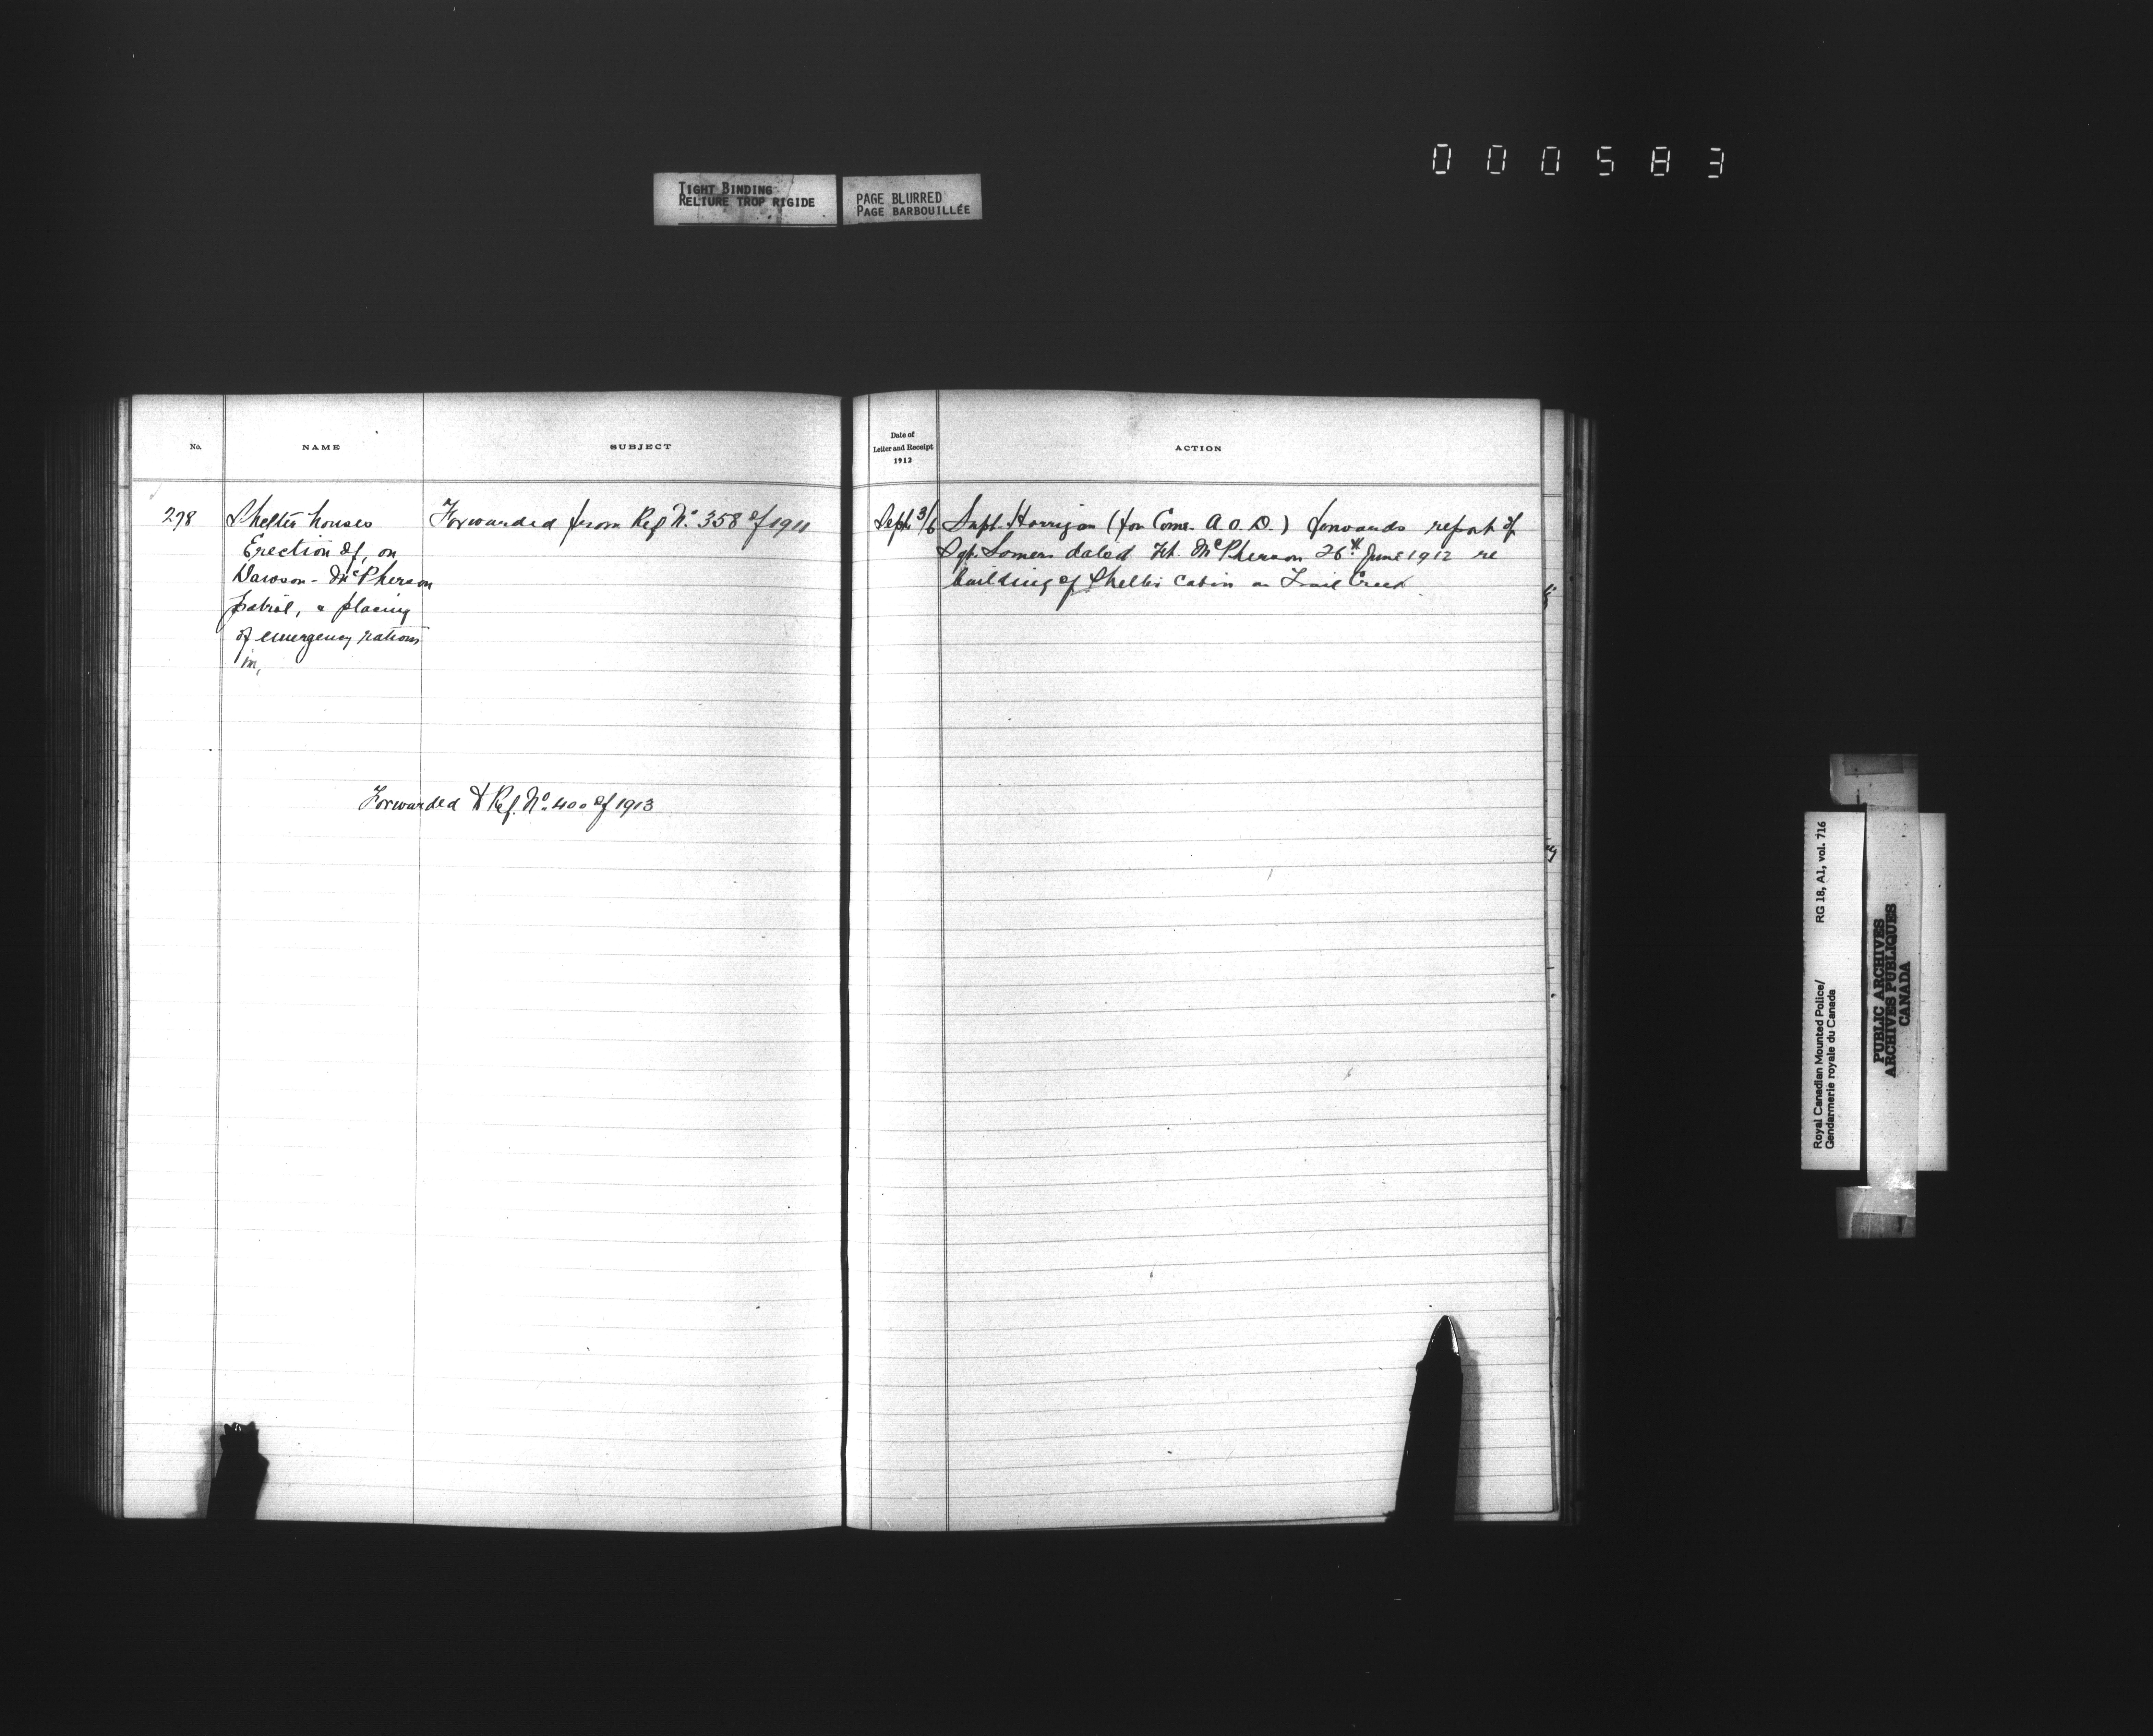 000583
TIGHT BINDING
RELIURE TROP RIGIDE
PAGE BLURRED
PAGE BARBOUILLÉE
No.
NAME
SUBJECT
278
Shelter houses
Erection of, on
Dawson - McPherson
patrol, & placing
of emergency rations
in,
Forwarded from Ref No. 358 of 1911
Forwarded to Ref. No. 400 of 1913
Date of
Letter and Receipt
1912
ACTION
Sept 3/6
Supt. Horrigan (for Comr. A.O.D.) forwards report of
Sgt. Somers dated Ft. McPherson 26th June 1912 re
building of Shelter Cabin on Trail Creek
Royal Canadian Mounted Police/
Gendarmerie royale du Canada
RG 18, A1, vol. 716
PUBLIC ARCHIVES
ARCHIVES PUBLIQUES
CANADA